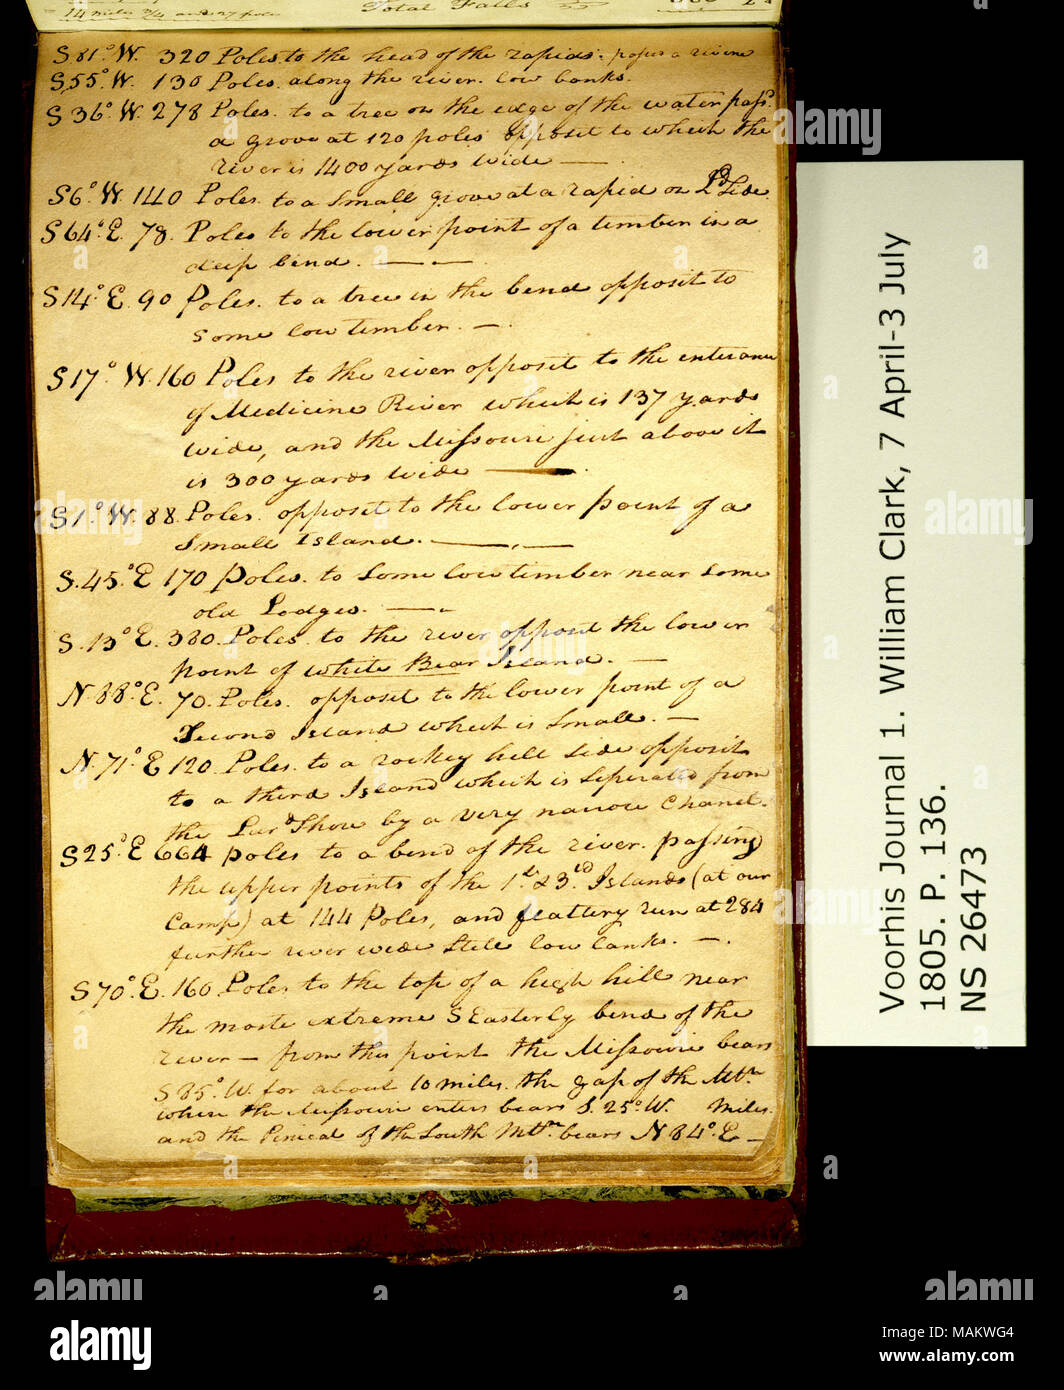 14 miles 3/4 and 27 poles Total Falls
S. 81° W. 320 Poles to the head of the rapids:
S. 55° W. 130 Poles along the river. low banks.
S 36° W. 278 Poles. to a tree on the edge of the water passd.
a grove at 120 poles opposit to which the
river is 1400 yards wide —
S 6° W. 140 Poles. to a Small grove at a rapid on Ld. Side.
S 64° E. 78. Poles to the lower point of a timber in a
deep bend. — —
S 14° E. 90 Poles. to a tree in the bend opposit to
some low timber. —.
S 17° W. 160 Poles to the river opposit to the enterance
of Medicine River which is 137 yards
wide, and the Missouri just above it
is 300 yards wide —
S 1° W. 88. Poles. opposit to the lower point of a
Small Island. —
S. 45° E 170 poles. to Some low timber near Some
old Lodges. —
S. 13° E. 380. Poles. to the river opposit the lower
point of white Bear Island. —
N. 88° E. 70. Poles. opposit to the lower point of a
Second Island which is Small. —
N. 71° E 120 Poles. to a rockey hill Side opposit
to a third Island which is Seperated from
the Lard. Shore by a very narrow Chanel.
S 25° E 664 poles to a bend of the river. passing
the upper points of the 1st. & 3rd. Islands (at our
Camp) at 144 Poles, and flattery run at 284
further river wide Still low banks. —.
S 70° E. 160 Poles to the top of a high hill near
the moste extreme S Easterly bend of the
river — from this point the Missouri bears
S 85° W. for about 10 miles. the gap of the Mtn.
where the Missouri enters bears S. 25° W. miles.
and the Pinical of the South Mtn. bears N 84° E —
Voorhis Journal 1. William Clark, 7 April-3 July
1805. P. 136.
NS 26473
alamy
Image ID: MAKWG4
www.alamy.com